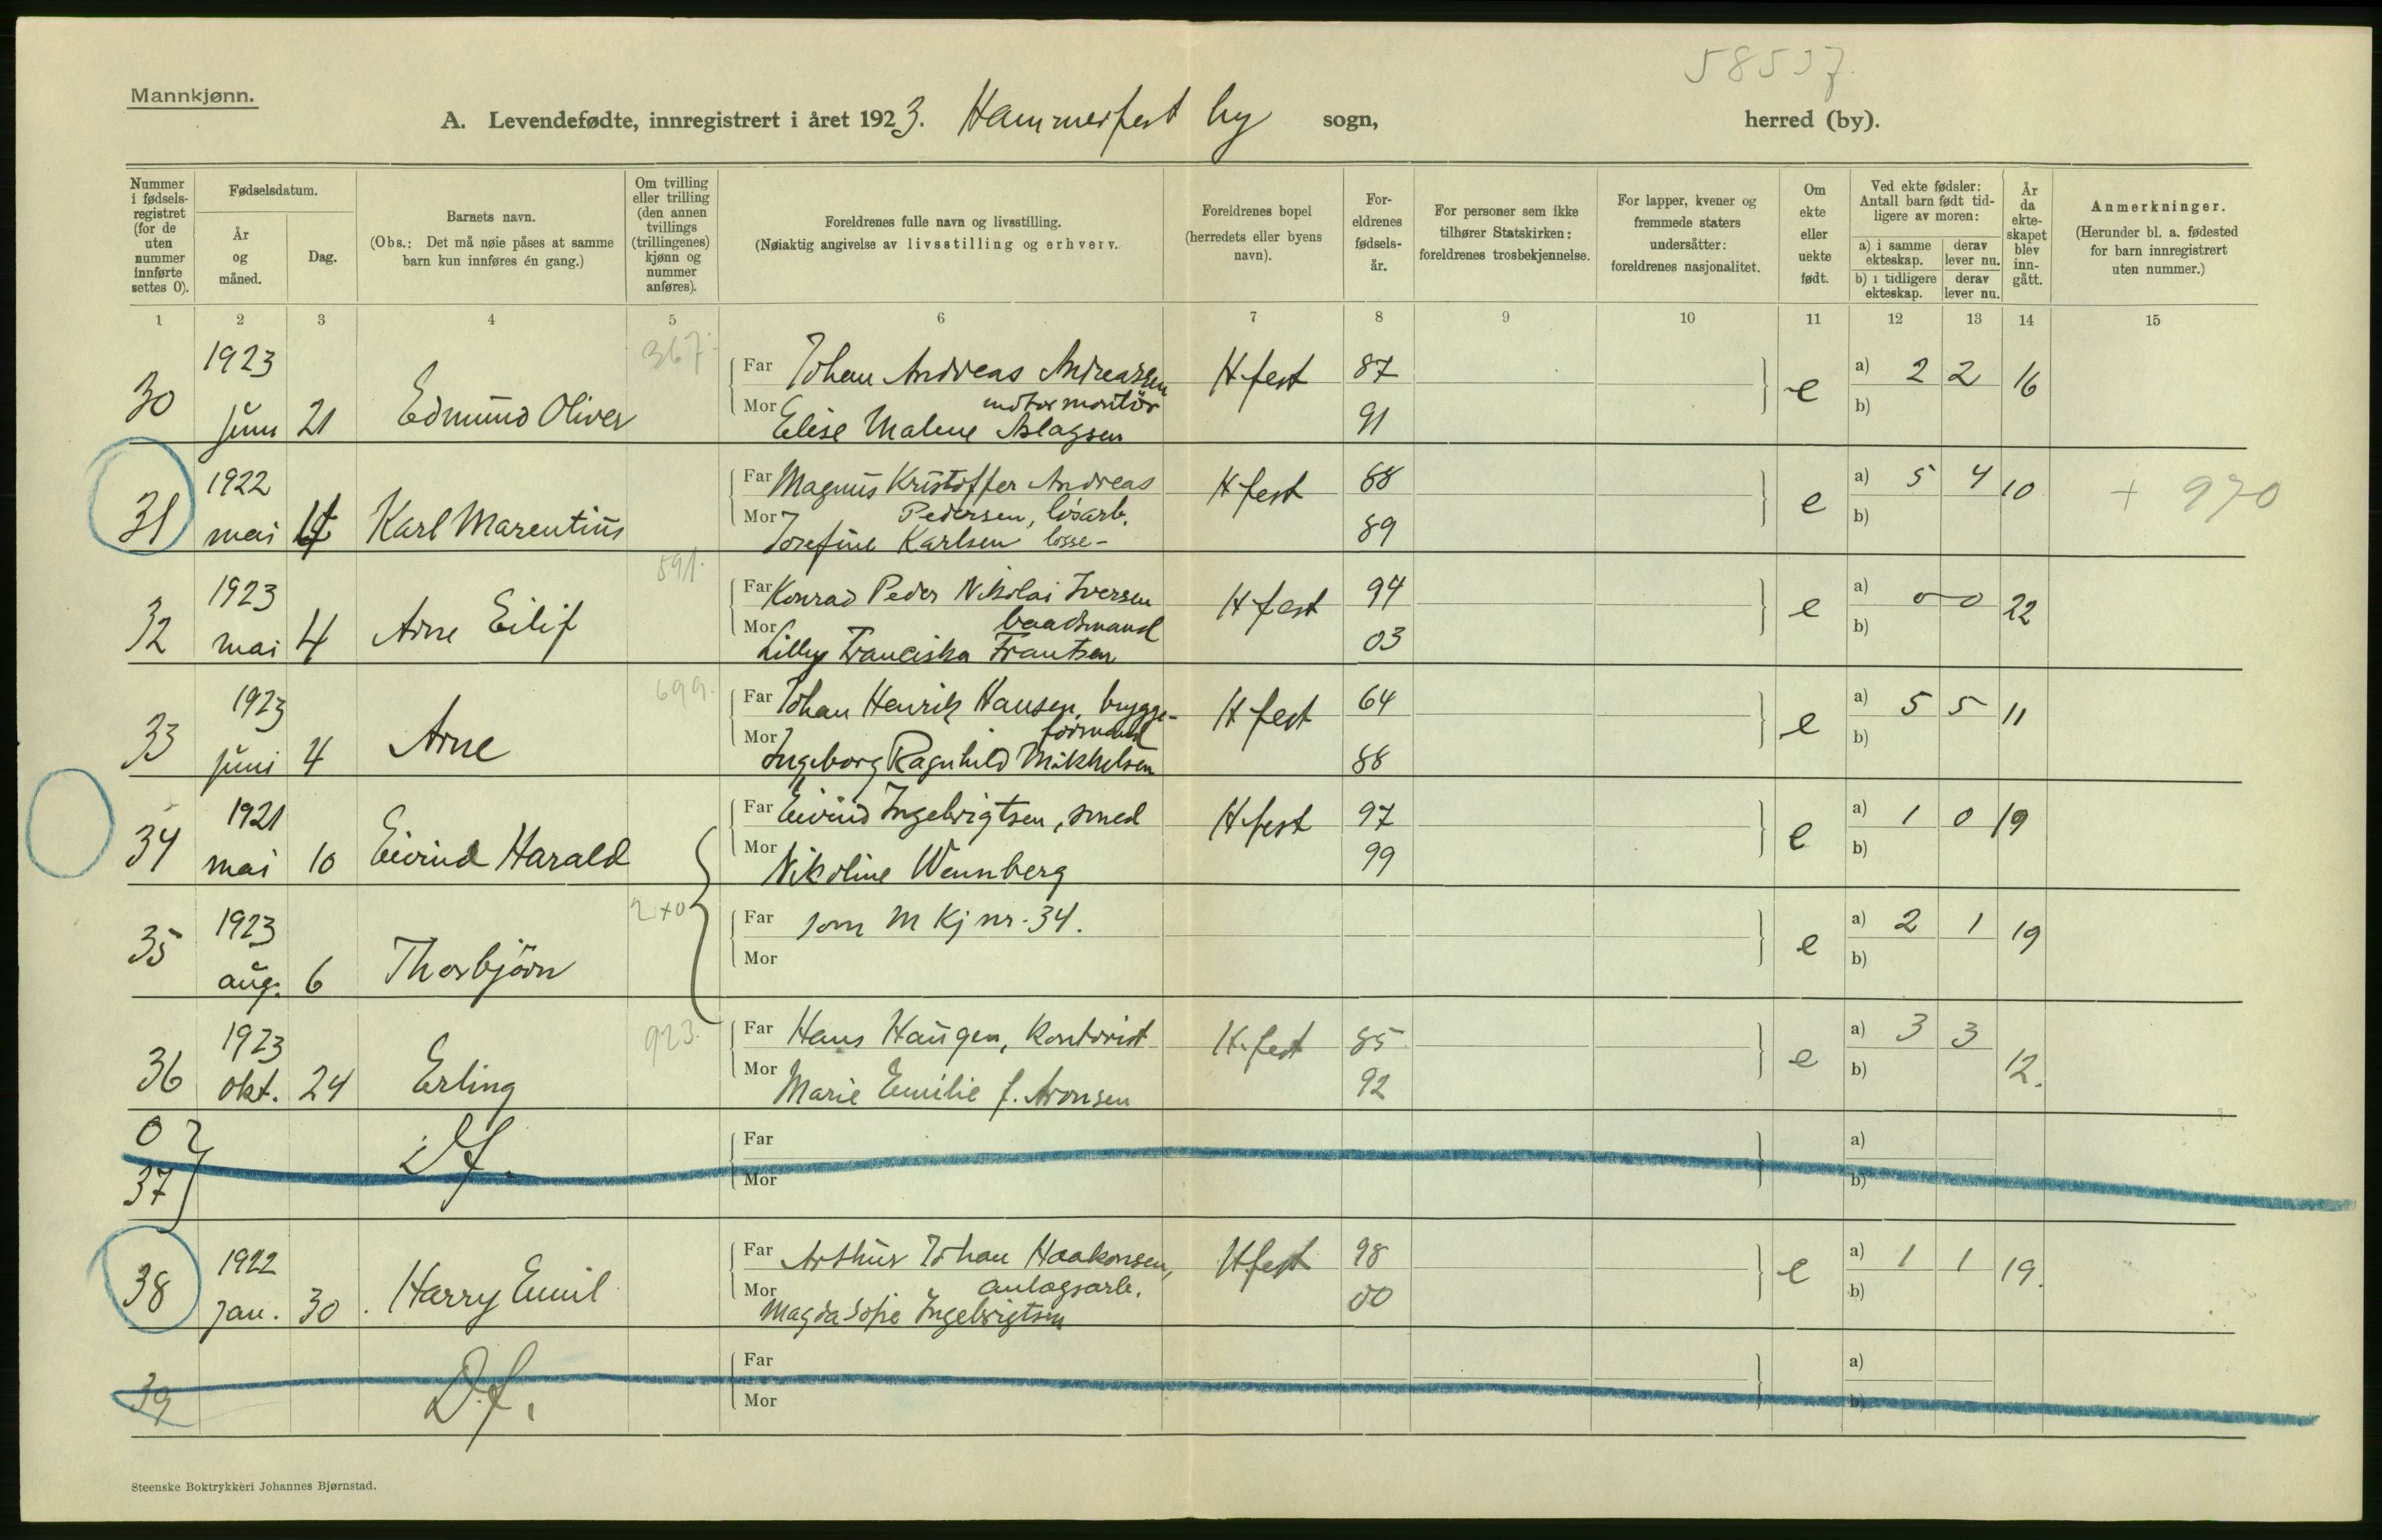 58537.
Mannkjønn.
A. Levendefødte, innregistrert i året 1923. Hammerfest by sogn, herred (by).
Nummer i fødsels-registret (for de uten nummer innførte settes 0).
Fødselsdatum.
År og måned.
Dag.
Barnets navn.
(Obs.: Det må nøie påses at samme barn kun innføres én gang.)
Om tvilling eller trilling (den annen tvillings (trillingenes) kjønn og nummer anføres).
Foreldrenes fulle navn og livsstilling.
(Nøiaktig angivelse av livsstilling og erhverv.
Foreldrenes bopel (herredets eller byens navn).
For-eldrenes fødsels-år.
For personer som ikke tilhører Statskirken: foreldrenes trosbekjennelse.
For lapper, kvener og fremmede staters undersåtter: foreldrenes nasjonalitet.
Om ekte eller uekte født.
Ved ekte fødsler: Antall barn født tid-ligere av moren:
a) i samme ekteskap. derav lever nu.
b) i tidligere ekteskap. derav lever nu.
År da ekte-skapet blev inn-gått.
Anmerkninger.
(Herunder bl. a. fødested for barn innregistrert uten nummer.)
1 2 3 4 5 6 7 8 9 10 11 12 13 14 15
30 1923 juni 21 Edmund Oliver 367.
Far Johan Andreas Andreassen H.fest 87 e a) 2 2 16
motormontör
Mor Elise Malene Aslagsen 91 b)
31 1922 mai 14 Karl Marentius
Far Magnus Kristoffer Andreas H.fest 88 e a) 5 4 10 + 970
Pedersen, lösarb.
Mor Josefine Karlsen losse- 89 b)
32 1923 mai 4 Arne Eilif 591.
Far Konrad Peder Nikolai Iversen H.fest 94 e a) 0 0 22
baadsmand
Mor Lilly Franciska Frantsen 03 b)
33 1923 juni 4 Arne 699.
Far Johan Henrik Hansen, brygge- H.fest 64 e a) 5 5 11
formand
Mor Ingeborg Ragnhild Mikkelsen 88 b)
34 1921 mai 10 Eivind Harald
Far Eivind Ingebrigtsen, smed H.fest 97 e a) 1 0 19
Mor Nikoline Wennberg 99 b)
35 1923 aug. 6 Thorbjörn
Far som M Kj nr. 34. e a) 2 1 19
Mor b)
36 1923 okt. 24 Erling 923.
Far Hans Haugen, kontorist H.fest 85 e a) 3 3 12.
Mor Marie Emilie f. Aronsen 92 b)
0
37 Df. Far a)
Mor b)
38 1922 jan. 30. Harry Emil
Far Arthur Johan Haakonsen, H.fest 98 e a) 1 1 19.
anlagsarb.
Mor Magda Sofie Ingebrigtsen 00 b)
39 D.f. Far a)
Mor b)
Steenske Boktrykkeri Johannes Bjørnstad.